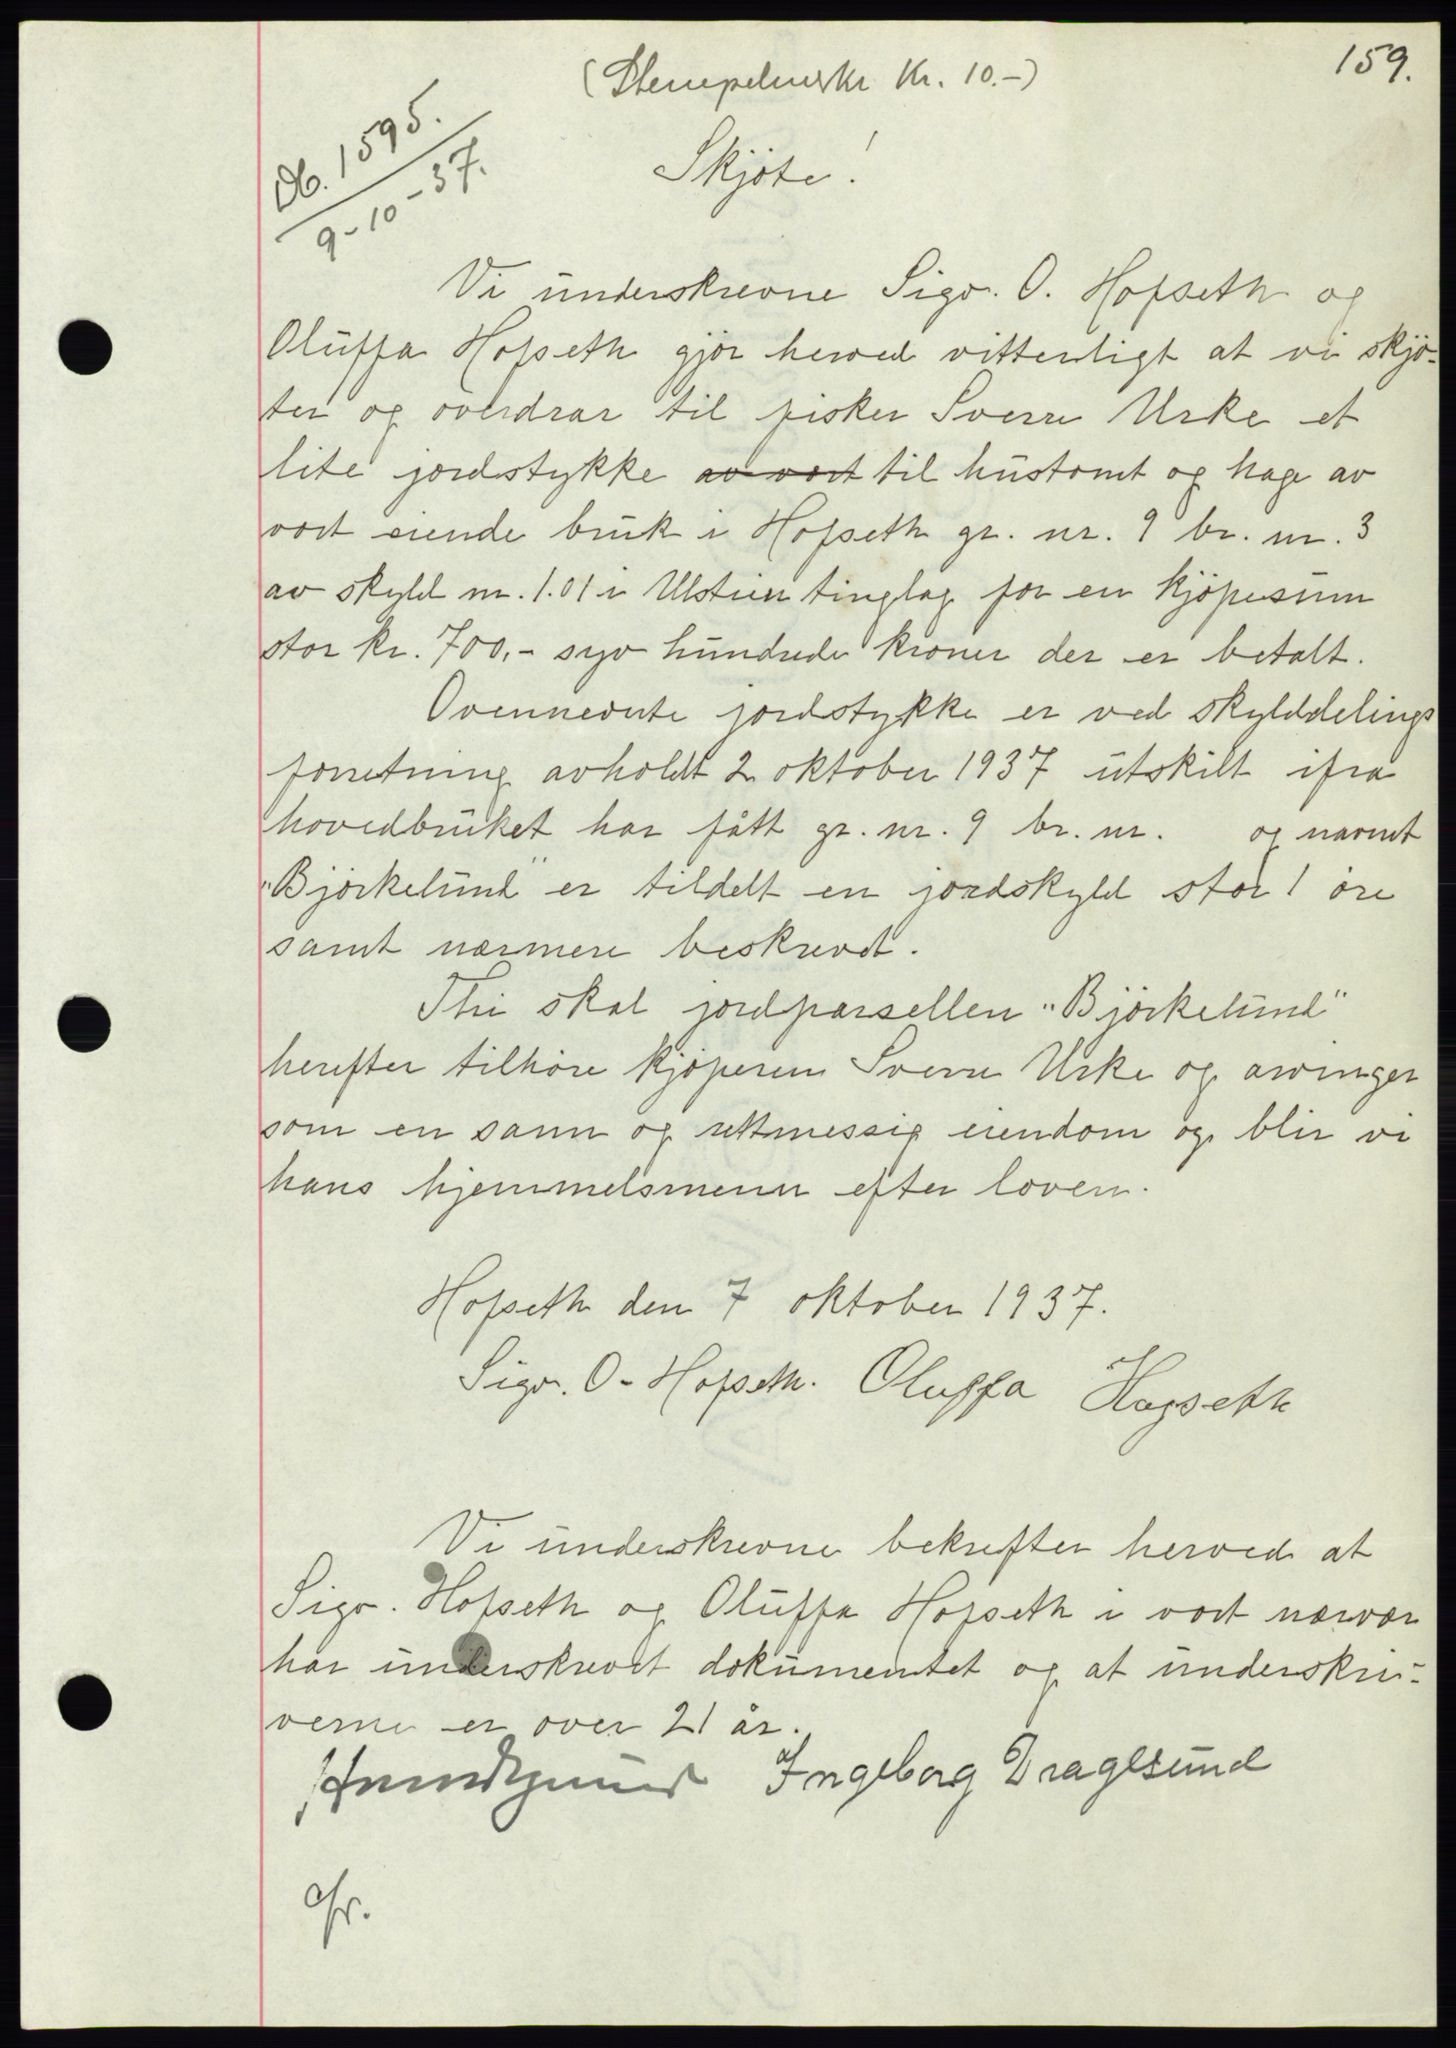 159.
(Stempelmerke Kr. 10.-)
Db. 1595.
9-10-37.
Skjöte!
Vi underskrevne Sigv. O. Hofseth og
Oluffa Hofseth gjör herved vitterligt at vi skjö-
ter og overdrar til fisker Sverre Urke et
lite jordstykke av vort til hustomt og hage av
vort eiende bruk i Hofseth gr. nr. 9 br. nr. 3
av skyld m. 1.01 i Ulstein tinglag for en kjöpesum
stor kr. 700,- syv hundrede kroner der er betalt.
Ovennevnte jordstykke er ved skylddelings
forretning avholdt 2 oktober 1937 utskilt ifra
hovedbruket har fått gr. nr. 9 br. nr. og navnet
"Björkelund" er tildelt en jordskyld stor 1 öre
samt nærmere beskrevet.
Thi skal jordparsellen "Björkelund"
herefter tilhöre kjöperen Sverre Urke og arvinger
som en sann og rettmessig eiendom og blir vi
hans hjemmelsmenn efter loven.
Hofseth den 7 oktober 1937.
Sigv. O. Hofseth. Oluffa Hofseth
Vi underskrevne bekrefter herved at
Sigv. Hofseth og Oluffa Hofseth i vort nærvær
har underskrevet dokumentet og at underskri-
verne er over 21 år.
Ingeborg Draglsund